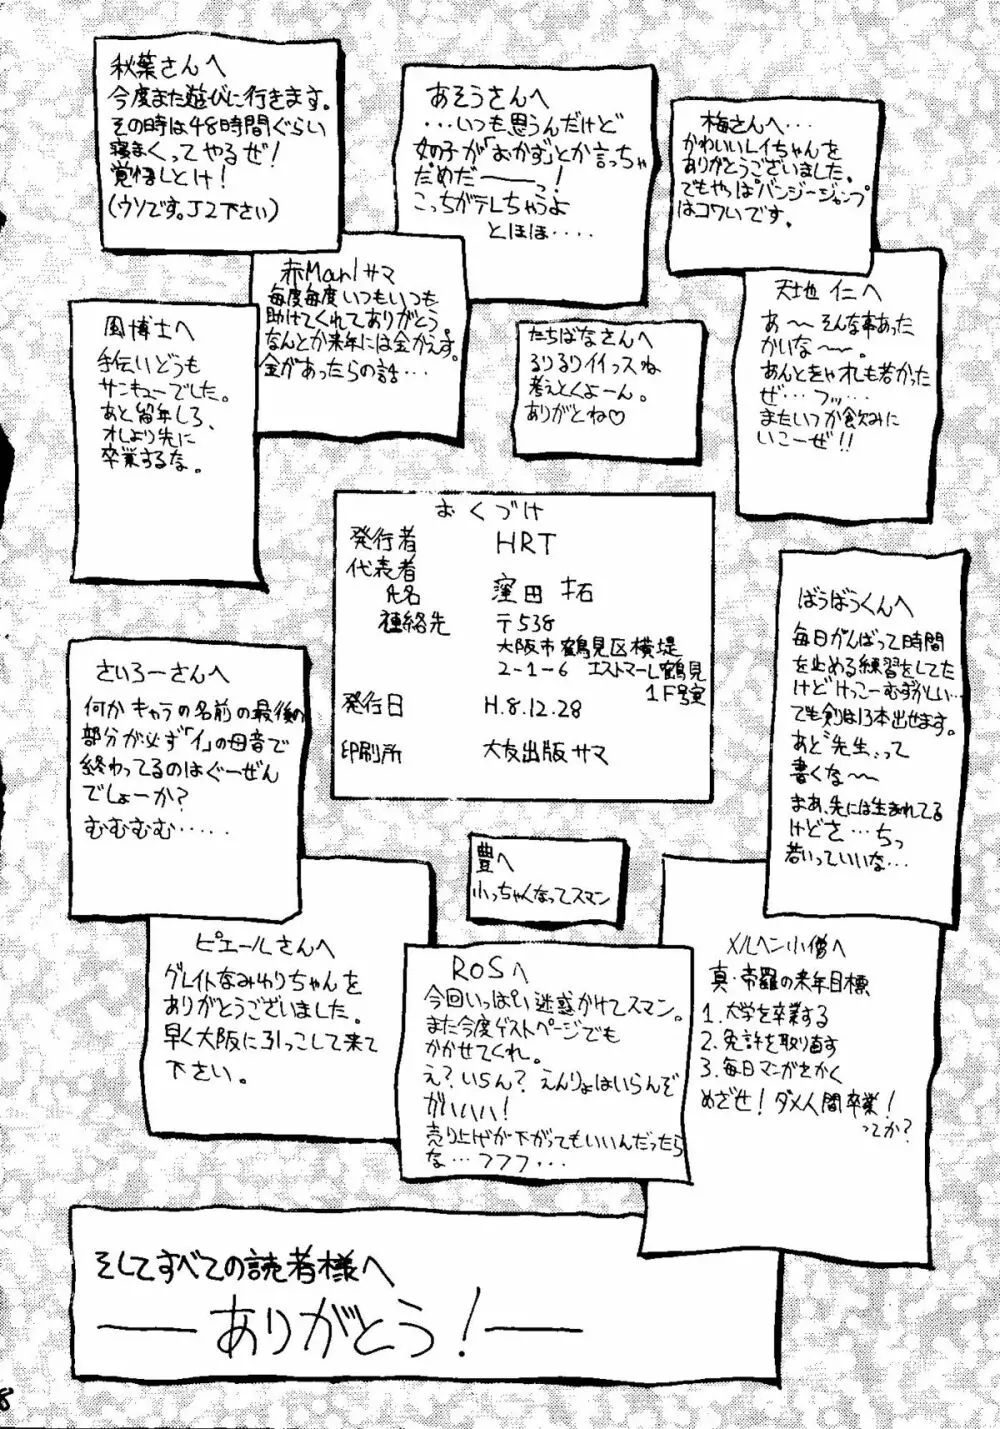 秋葉さんへ
今度また遊びに行きます。
その時は48時間ぐらい
寝まくってやるぜ!
覚悟しとけ!
(ウソです。J2下さい)
あそうさんへ
・・・いつも思うんだけど
女の子が「おかず」とか言っちゃ
だめだ――っ!
こっちがテレちゃうよ
とほほ・・・・
梅さんへ・・・
かわいいレイちゃんを
ありがとうございました。
でもやっぱバンジージャンプ
はコワいです。
赤Manlサマ
毎度毎度いつもいつも
助けてくれてありがとう
なんとか来年には金かえす。
金があったらの話・・・
天地 仁へ
あ〜〜そんな事あった
かいな〜〜。
あんときゃオレも若かった
ぜ・・・フッ・・・
またいつか飲みに
いこーぜ!!
風博士へ
手伝いどうも
サンキューでした。
あと留年しろ、
オレより先に
卒業するな。
たちばなさんへ
るりるりイイっスね
考えとくよーん。
ありがとね♡
おくづけ
発行者 HRT
代表者
氏名 窪田 拓
連絡先 〒538
大阪市鶴見区横堤
2-1-6 エストマーレ鶴見
1F号室
発行日 H.8.12.28
印刷所 大友出版サマ
ばうばうくんへ
毎日がんばって時間
を止める練習をしてた
けどけっこーむずかしい…
でも剣は13本出せます。
あと"先生"って
書くな〜〜
まあ、先には生まれてる
けどさ・・・ちっ
若いっていいな・・・
さいろーさんへ
何かキャラの名前の最後の
部分が必ず「イ」の母音で
終わってるのはぐーぜん
でしょーか?
むむむむ・・・・・
豊へ
小っちゃくなってスマン
ピエールさんへ
グレイトなみゆりちゃんを
ありがとうございました。
早く大阪に引っこして来て
下さい。
ROSへ
今回いっぱい迷惑かけてスマン。
また今度ゲストページでも
かかせてくれ。
え?いらん?えんりょはいらんぞ
ガハハハ!
売り上げが下がってもいいんだったら
な・・・フフフ・・・
メルヘン小僧へ
真・帝羅の来年目標
1.大学を卒業する
2.免許を取り直す
3.毎日マンガをかく
めざせ!ダメ人間卒業!
ってか?
そしてすべての読者様へ
――ありがとう!――
8